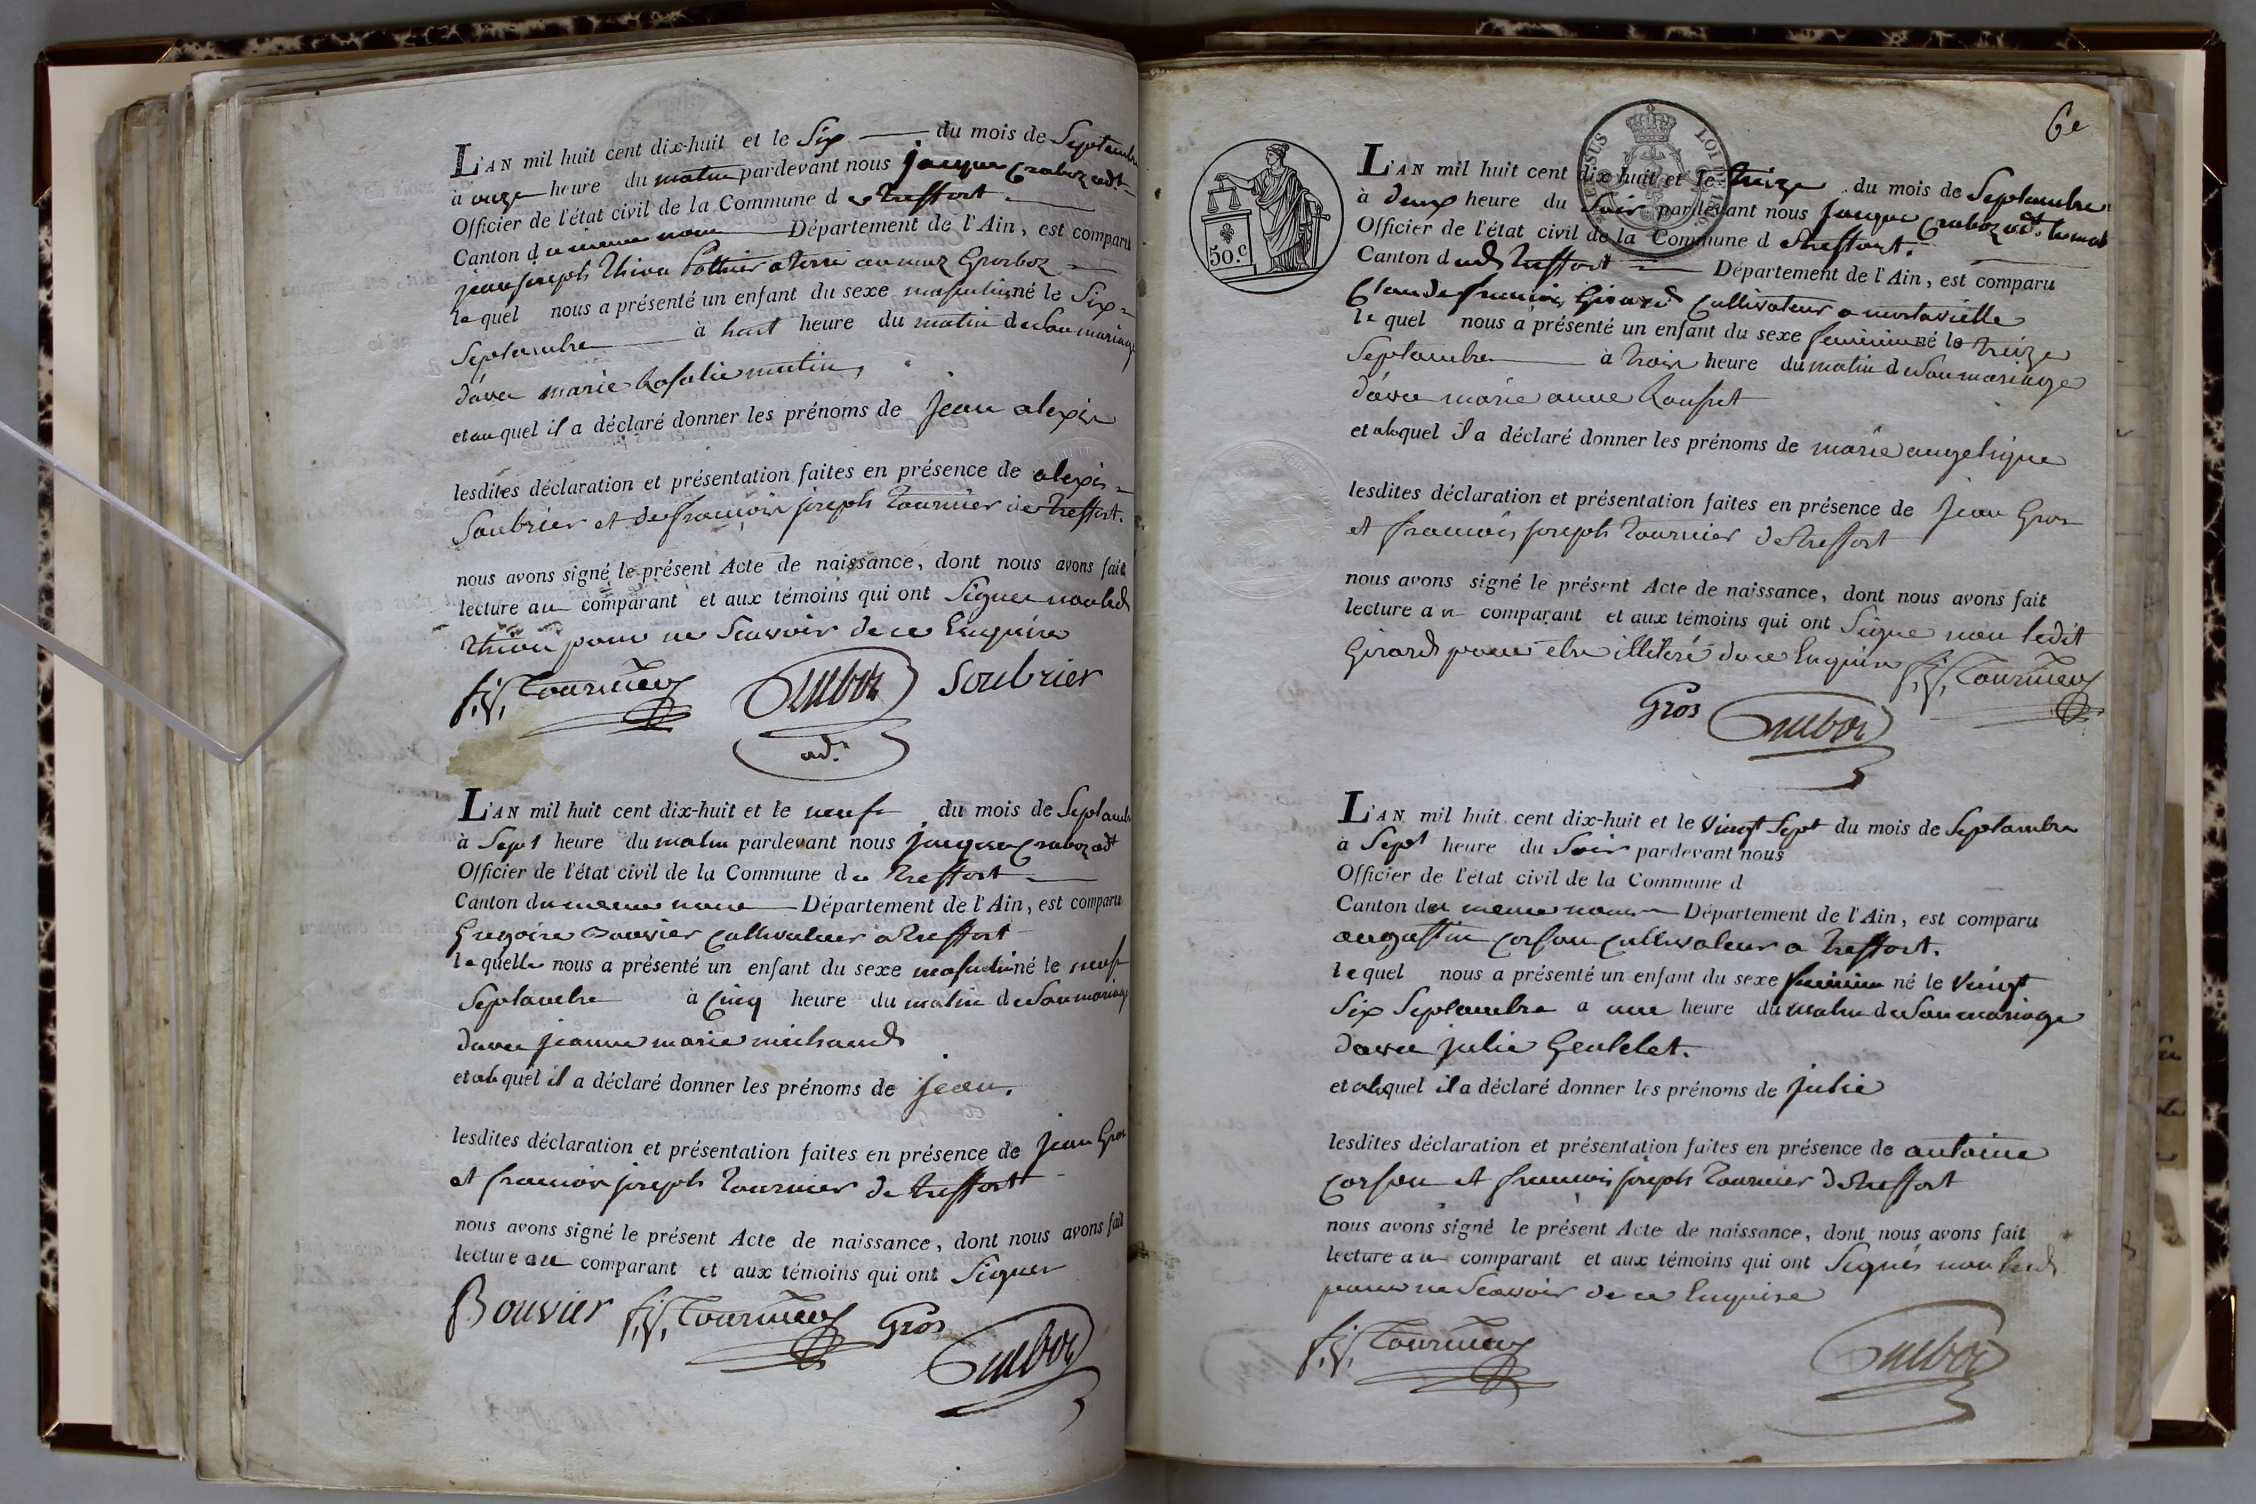 L'AN mil huit cent dix-huit et le Six du mois de Septembre
à onze heure du matin pardevant nous jacque Craboz adt
Officier de l'état civil de la Commune de treffort
Canton du meme nom Département de l'Ain, est comparu
jean joseph thion Pottier a terre au
lequel nous a présenté un enfant du sexe masculin né le Six
Septambre à huit heure du matin de Son mariage
d'avec marie Rosalie mutin,
et au quel il a déclaré donner les prénoms de jean alexis
lesdites déclaration et présentation faites en présence de alexis
Soubrier et de francois joseph tournier de treffort.
nous avons signé le présent Acte de naissance, dont nous avons fait
lecture au comparant et aux témoins qui ont Signer non led
thion pour ne Scavoir de ce Enquire
f. j. Tournier Soubrier
adt
L'AN mil huit cent dix-huit et le neuf du mois de Septambre
à Sept heure du matin pardevant nous jacque Craboz adt
Officier de l'état civil de la Commune de treffort
Canton du meme nom Département de l'Ain, est comparu
Gregoire Bouvier Cultivateur a treffort
le quelle nous a présenté un enfant du sexe masculin né le neuf
Septambre à Cinq heure du matin de Son mariage
davec jeanne marie michaud
et au quel il a déclaré donner les prénoms de jean.
lesdites déclaration et présentation faites en présence de jean Gros
et francois joseph tournier de treffort
nous avons signé le présent Acte de naissance, dont nous avons fait
lecture au comparant et aux témoins qui ont Signer
Bouvier f. j. Tournier Gros
6e
50.c
L'AN mil huit cent dix-huit et le treize du mois de Septambre
à deux heure du Soir pardevant nous jacque Craboz adt
Officier de l'état civil de la Commune de treffort.
Canton dud treffort Département de l'Ain, est comparu
Claude francois Girard Cultivateur a montavielle
le quel nous a présenté un enfant du sexe feminin né le treize
Septambre à trois heure du matin de Son mariage
d'avec marie anne
et au quel il a déclaré donner les prénoms de marie angelique
lesdites déclaration et présentation faites en présence de jean Gros
et francois joseph tournier de treffort
nous avons signé le présent Acte de naissance, dont nous avons fait
lecture au comparant et aux témoins qui ont Signe non ledit
Girard pour etre illiteré de ce Enquire f. j. Tournier
Gros
L'AN mil huit cent dix-huit et le Vingt Sept du mois de Septambre
à Sept heure du Soir pardevant nous
Officier de l'état civil de la Commune d
Canton du meme nom Département de l'Ain, est comparu
augustin Corsan Cultivateur a treffort.
le quel nous a présenté un enfant du sexe feminin né le Vingt
Six Septambre a une heure du matin de Son mariage
d'avec julie
et au quel il a déclaré donner les prénoms de julie
lesdites déclaration et présentation faites en présence de antoine
Corsan et francois joseph tournier de treffort
nous avons signé le présent Acte de naissance, dont nous avons fait
lecture au comparant et aux témoins qui ont Signés non led
pour ne Scavoir de ce Enquire
f. j. Tournier